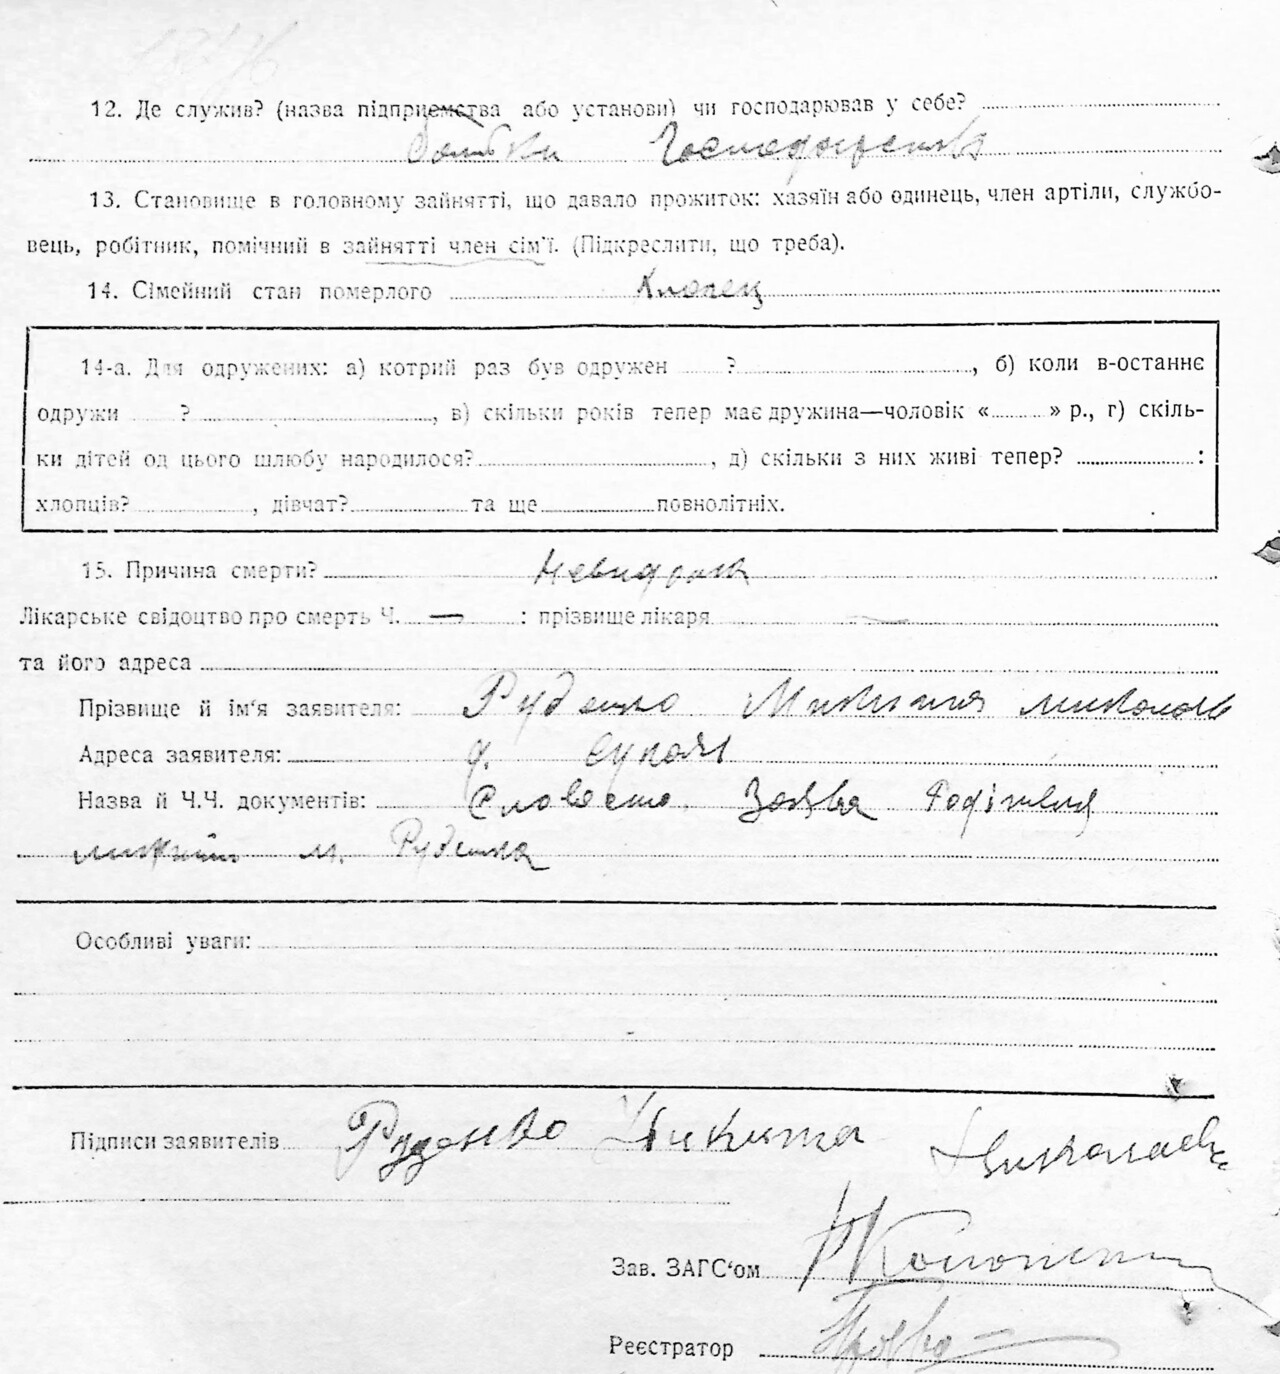 12. Де служив? (назва підприємства або установи) чи господарював у себе?
батьки
13. Становище в головному зайнятті, що давало прожиток: хазяїн або одинець, член артіли, службо-
вець, робітник, помічний в зайнятті член сім'ї. (Підкреслити, що треба).
14. Сімейний стан померлого Хлопец
14-а. Для одружених: а) котрий раз був одружен ?, б) коли в-останнє
одружи ?, в) скільки років тепер має дружина—чоловік « » р., г) скіль-
ки дітей од цього шлюбу народилося?, д) скільки з них живі тепер? :
хлопців? , дівчат? та ще повнолітніх.
15. Причина смерти? Невидома
Лікарське свідоцтво про смерть Ч. — : прізвище лікаря —
та його адреса
Прізвище й ім'я заявителя: Руденко Микита
Адреса заявителя:
Назва й Ч.Ч. документів: Словесно Заява
М. Руденка
Особливі уваги:
Підписи заявителів Руденко Никита
Зав. ЗАГС'ом
Реєстратор